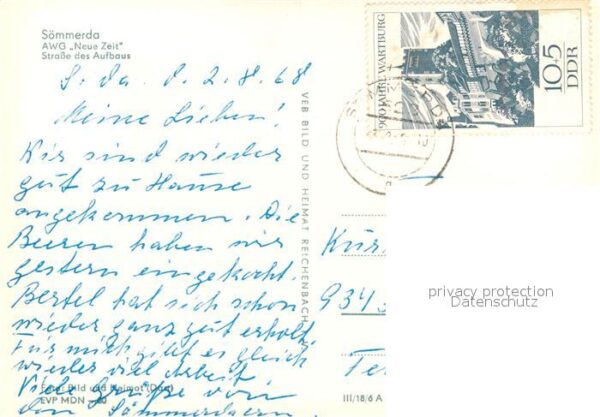 Sömmerda
AWG „Neue Zeit"
Straße des Aufbaus
S. da d. 2.8.68
Meine Lieben!
Wir sind wieder
gut zu Hause
angekommen. Die
Beeren haben wir
gestern eingekocht.
Bertel hat sich schon
wieder ganz gut erholt
Für mich gibt es gleich
wieder viel Arbeit
Viele Grüße von
den Sömmerdaern
Bild und Heimat
EVP MDN
VEB BILD UND HEIMAT REICHENBACH
900 JAHRE WARTBURG
10+5
DDR
934
privacy protection
Datenschutz
III/18/6 A